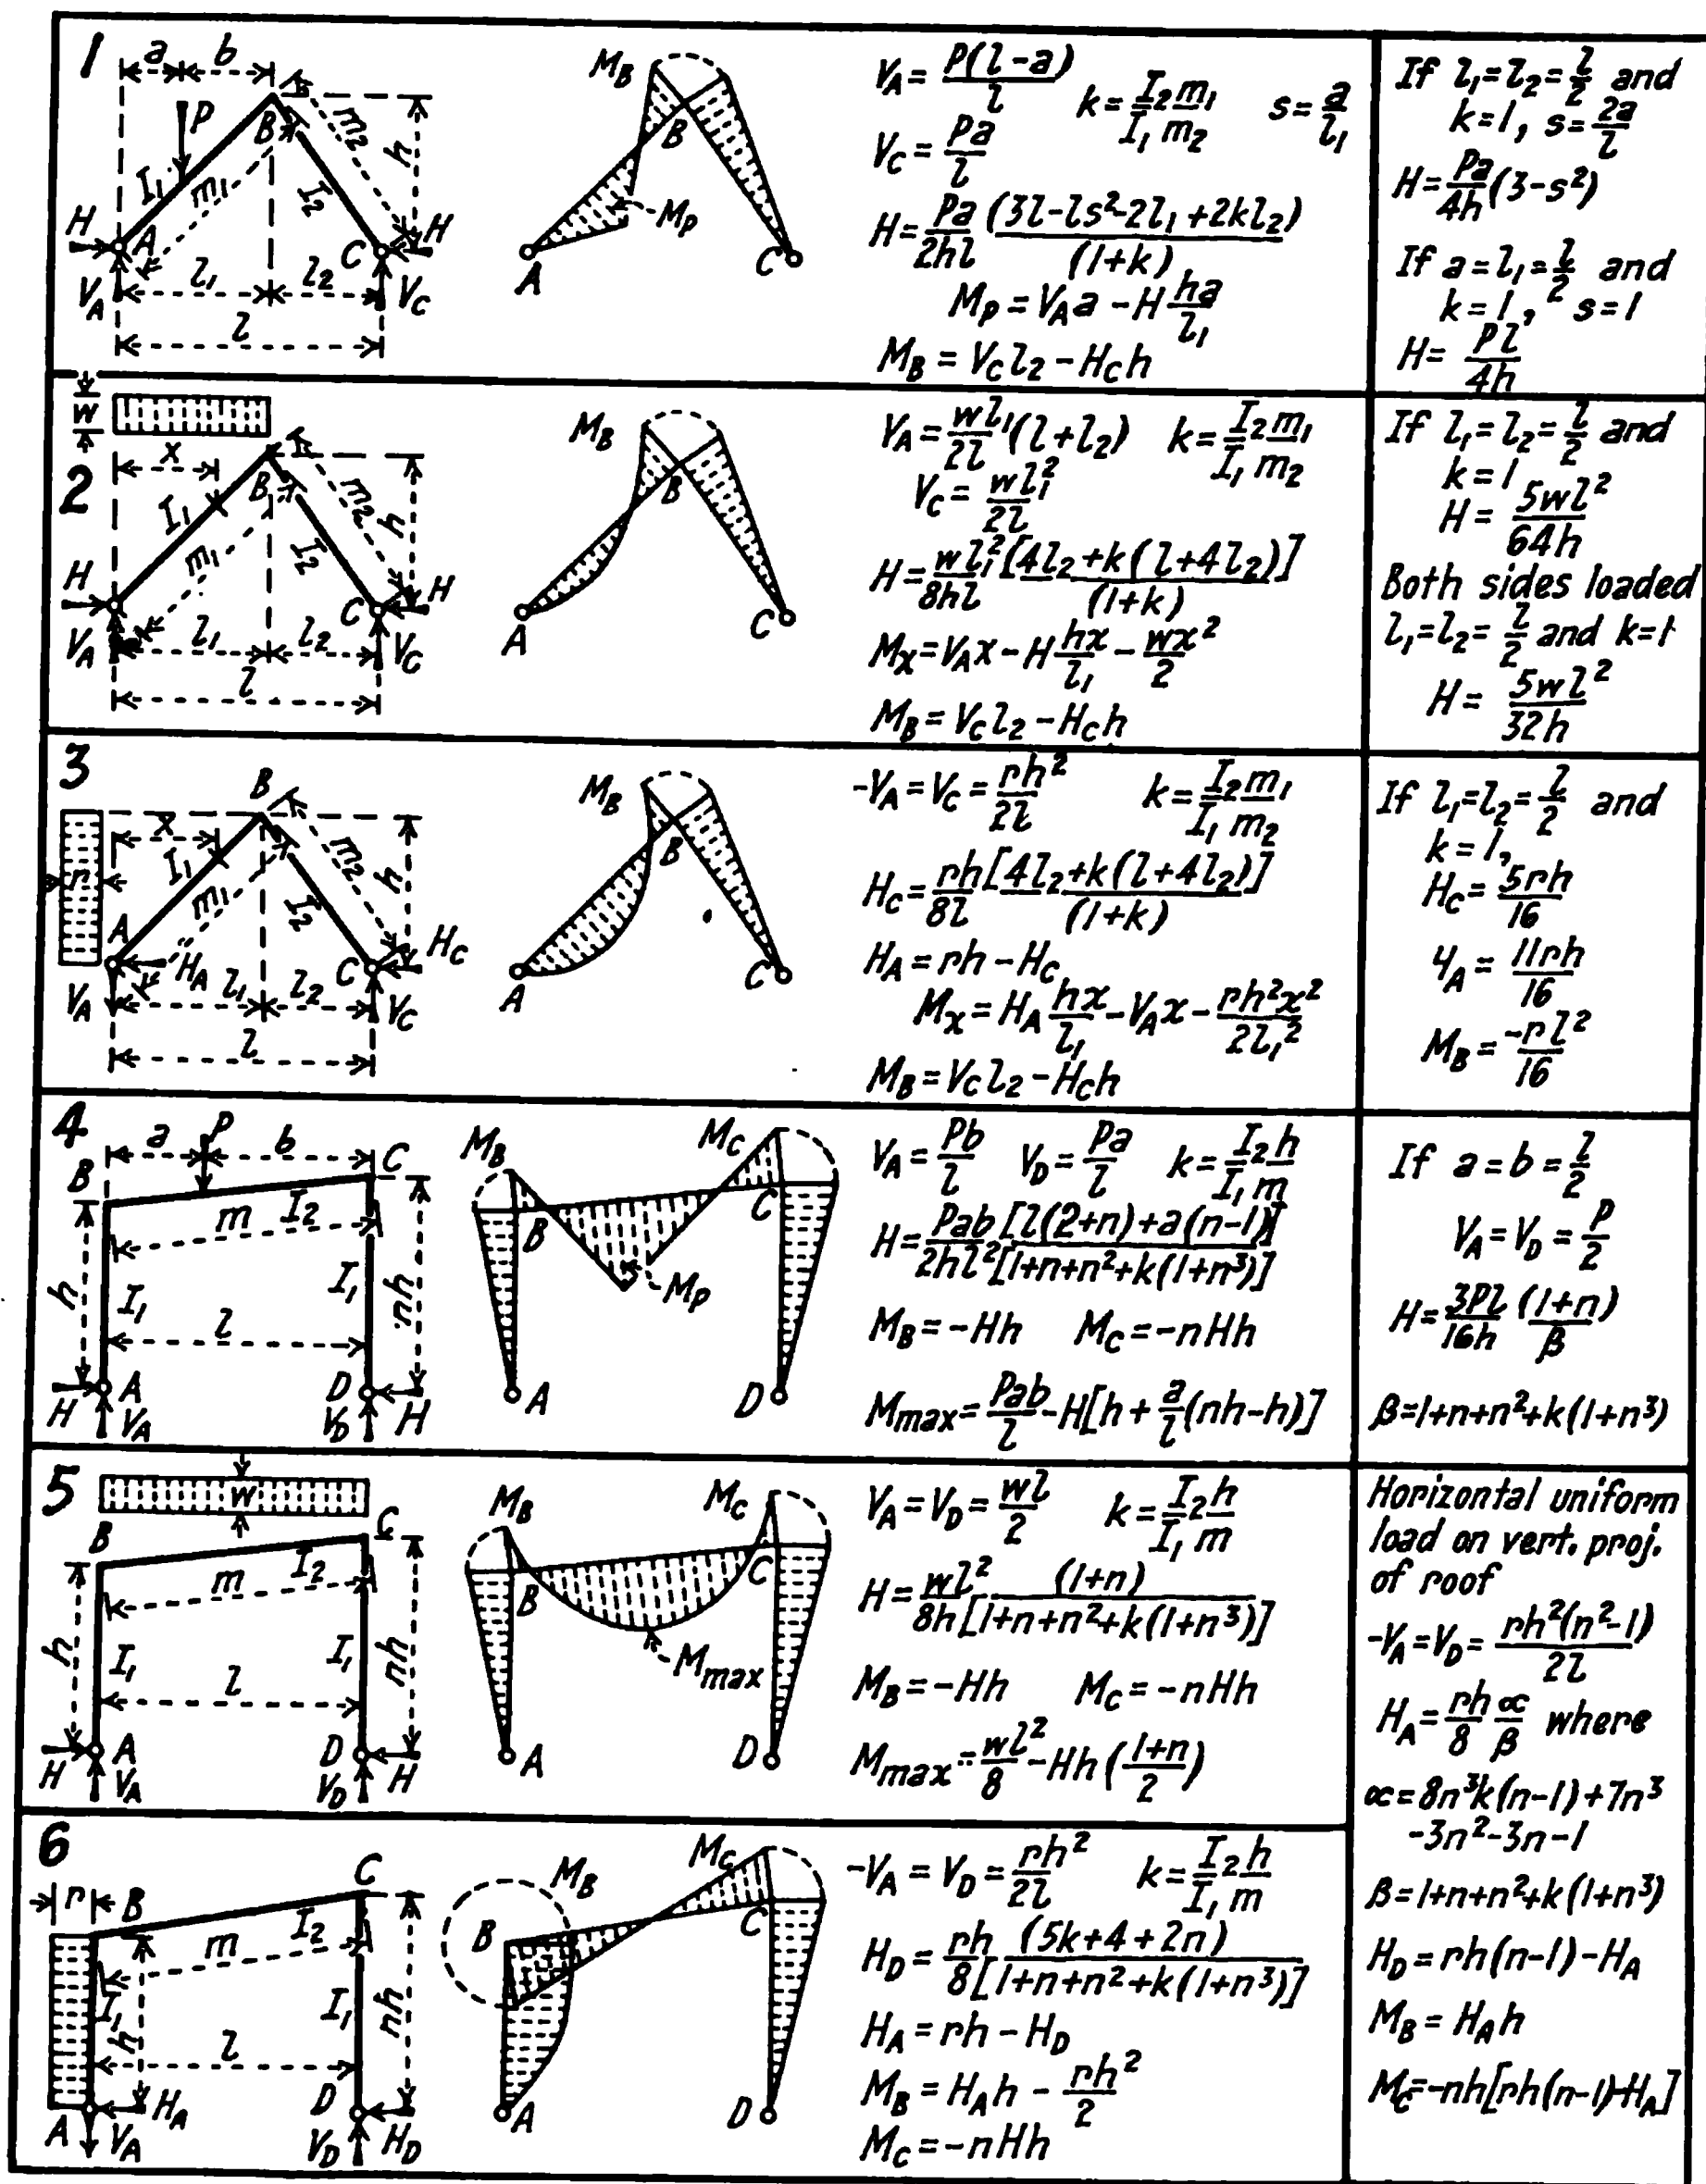 1
a b
P
B
h
m₂
I₁
m₁
I₂
H A C H
V_A l₁ l₂ V_C
l
M_B
B
M_P
A C
V_A = P(l-a)/l k = I₂m₁/I₁m₂ s = a/l₁
V_C = Pa/l
H = Pa/2hl (3l-ls²-2l₁+2kl₂)/(1+k)
M_P = V_A a - H ha/l₁
M_B = V_C l₂ - H_C h
If l₁=l₂=l/2 and
k=1, s=2a/l
H = Pa/4h (3-s²)
If a=l₁=l/2 and
k=1, s=1
H = Pl/4h
2
w
x
B
h
m₂
I₁
m₁
I₂
H C H
V_A l₁ l₂ V_C
l
M_B
B
A C
V_A = wl₁/2l (l+l₂) k = I₂m₁/I₁m₂
V_C = wl₁²/2l
H = wl₁²/8hl [4l₂+k(l+4l₂)]/(1+k)
M_x = V_A x - H hx/l₁ - wx²/2
M_B = V_C l₂ - H_C h
If l₁=l₂=l/2 and
k=1
H = 5wl²/64h
Both sides loaded
l₁=l₂=l/2 and k=1
H = 5wl²/32h
3
B
x
h
m₂
I₁
r
m₁
I₂
A
H_A C H_C
V_A l₁ l₂ V_C
l
M_B
B
A C
-V_A = V_C = rh²/2l k = I₂m₁/I₁m₂
H_C = rh/8l [4l₂+k(l+4l₂)]/(1+k)
H_A = rh - H_C
M_x = H_A hx/l₁ - V_A x - rh²x²/2l₁²
M_B = V_C l₂ - H_C h
If l₁=l₂=l/2 and
k=1,
H_C = 5rh/16
4_A = 11rh/16
M_B = -rl²/16
4
a P b
B C
m I₂
h I₁ I₁ nh
l
H A D H
V_A V_D
M_B M_C
B C
M_P
A D
V_A = Pb/l V_D = Pa/l k = I₂h/I₁m
H = Pab/2hl² [l(2+n)+a(n-1)]/[1+n+n²+k(1+n³)]
M_B = -Hh M_C = -nHh
M_max = Pab/l - H[h + a/l (nh-h)]
If a=b=l/2
V_A = V_D = P/2
H = 3Pl/16h (1+n)/β
β = 1+n+n²+k(1+n³)
5
w
B C
m I₂
h I₁ nh
l
H A D H
V_A V_D
M_B M_C
B C
M_max
A D
V_A = V_D = wl/2 k = I₂h/I₁m
H = wl²/8h (1+n)/[1+n+n²+k(1+n³)]
M_B = -Hh M_C = -nHh
M_max = wl²/8 - Hh((1+n)/2)
Horizontal uniform
load on vert. proj.
of roof
-V_A = V_D = rh²(n²-1)/2l
H_A = rh/8 α/β where
α = 8n³k(n-1)+7n³
-3n²-3n-1
β = 1+n+n²+k(1+n³)
H_D = rh(n-1)-H_A
M_B = H_A h
M_C = -nh[rh(n-1)-H_A]
6
r B C
m I₂
I₁ h I₁ nh
l
A H_A D
V_A V_D H_D
M_B M_C
B C
A D
-V_A = V_D = rh²/2l k = I₂h/I₁m
H_D = rh/8 (5k+4+2n)/[1+n+n²+k(1+n³)]
H_A = rh - H_D
M_B = H_A h - rh²/2
M_C = -nHh